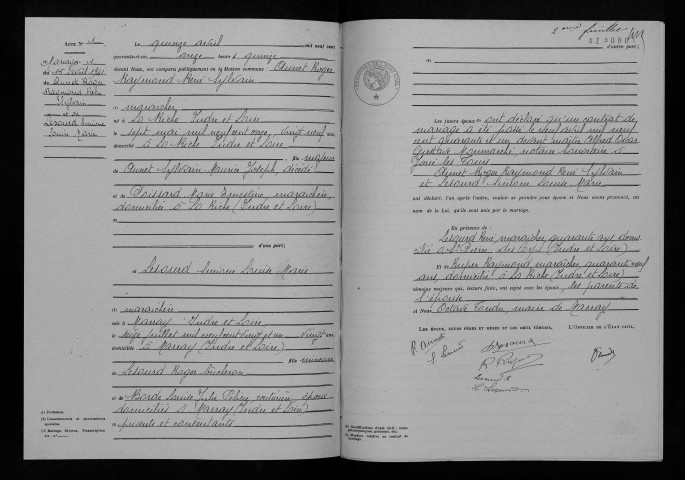 Acte N° 1
Mariage
15 avril 1941
Annet Roger
Raymond René
Sylvain
et de
Lesourd Simone
Louise Marie
Le quinze avril mil neuf cent
quarante-et-un onze heures quinze
devant Nous, ont comparu publiquement en la Maison commune : Annet Roger
Raymond René Sylvain
(1) maraîcher
né à La Riche Indre et Loire
le sept mai mil neuf cent onze, vingt neuf ans
domicilié à La Riche (Indre et Loire)
fils majeur
de Annet Sylvain Maurice Joseph, décédé
et de Poissard Marie Ernestine, maraîchère,
domiciliée à La Riche (Indre et Loire)
d'une part ;
et Lesourd Simone Louise Marie
(1) maraîchère
née à Marray Indre et Loire
le seize juillet mil neuf cent vingt et un
domiciliée à Marray (Indre et Loire)
fille mineure
de Lesourd Roger bûcheron
et de Borde couturière, époux
domiciliés à Marray (Indre et Loire)
présente et consentante
(1) Profession.
(2) Consentements et autorisations
spéciales.
(3) Mariage, Divorce, Transcription
feuillet
AZ 5080
d'autre part ;
Les futurs époux ont déclaré qu'un contrat de
mariage a été passé le neuf avril mil neuf
cent quarante et un devant maître Alfred Oscar
Gustave notaire honoraire à
Joué les Tours
Annet Roger Raymond René Sylvain
et Lesourd Simone Louise Marie
ont déclaré, l'un après l'autre, vouloir se prendre pour époux et Nous avons prononcé, au
nom de la Loi, qu'ils sont unis par le mariage.
En présence de :
Lesourd René, maraîcher, quarante ans domi-
cilié à St Pierre des Corps (Indre et Loire)
Et de Raymond maraîcher, quarante neuf
ans, domicilié à La Riche (Indre et Loire)
témoins majeurs qui, lecture faite, ont signé avec les époux, les parents de
l'épouse
et Nous Octave maire de Marray
LES ÉPOUX, LEURS PÈRES ET MÈRES ET LES DEUX TÉMOINS, L'OFFICIER DE L'ÉTAT CIVIL,
R. Annet
S. Lesourd